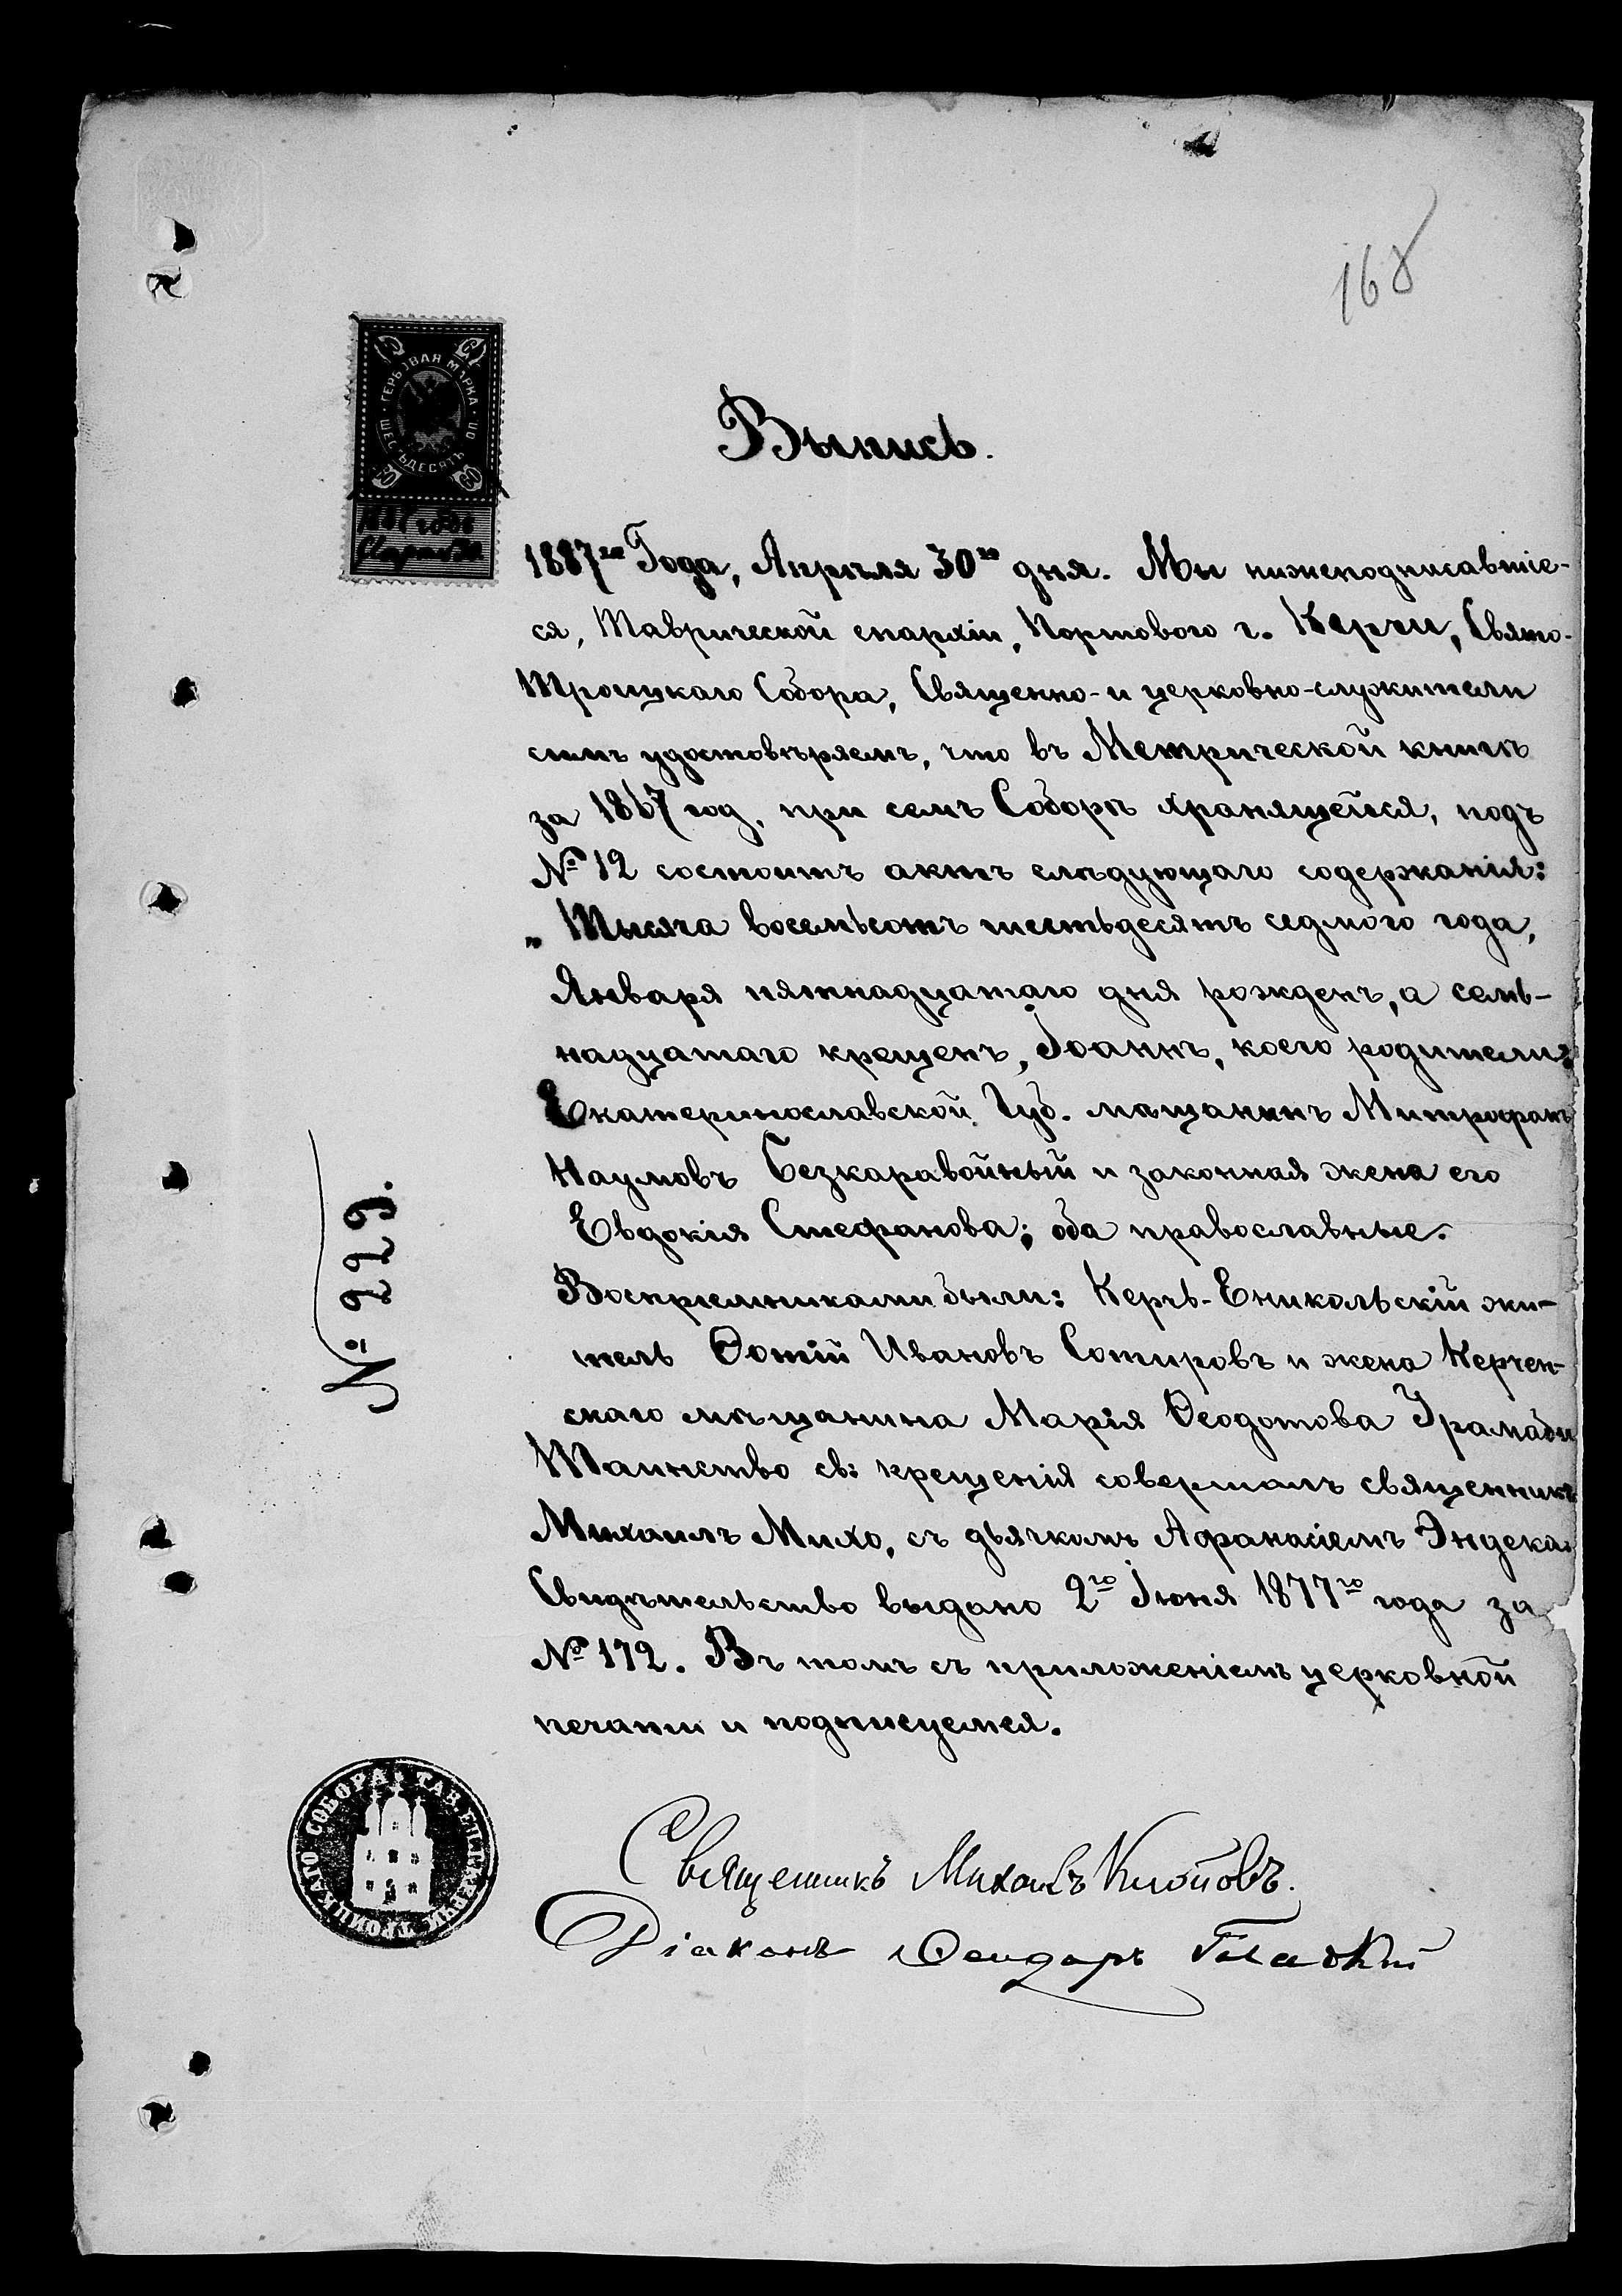 168
ГЕРБОВАЯ МАРКА
ШЕСТЬДЕСЯТЪ
1887 года
Апреля 30
Выпись.
1887го Года, Апрѣля 30го дня. Мы нижеподписавшіе-
ся, Таврической епархіи, Портового г. Керчи, Свято-
Троицкаго Собора, Священно- и церковно-служители
симъ удостовѣряемъ, что въ Метрической книгѣ
за 1867 год, при семъ Соборѣ хранящейся, подъ
№ 12 состоитъ актъ слѣдующаго содержанія:
„Тысяча восемьсотъ шестьдесятъ седмого года,
Января пятнадцатаго дня рожденъ, а семь-
надцатаго крещенъ, Іоаннъ, коего родители:
Екатеринославской Губ. мѣщанинъ Митрофанъ
Наумовъ Безкаравойный и законная жена его
Евдокія Стефанова; оба православные.
Воспріемниками были: Керчь-Еникольскій жи-
тель Фотій Ивановъ Сотировъ и жена Керчен-
скаго мѣщанина Марія Феодотова
Таинство св: крещенія совершалъ священникъ
Михаилъ Михо, съ дьячкомъ Афанасіемъ Эндека.
Свидѣтельство выдано 2го Іюня 1877го года за
№ 172. Въ томъ съ приложеніемъ церковной
печати и подписуемся.
№ 229.
ТРОИЦКАГО СОБОРА ТАВ. ЕП. Г. КЕРЧИ
Священникъ Михаилъ
Діаконъ Феодоръ